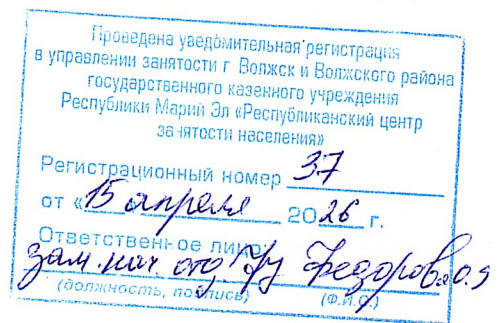 Проведена уведомительная регистрация
в управлении занятости г. Волжск и Волжского района
государственного казенного учреждения
Республики Марий Эл «Республиканский центр
занятости населения»
Регистрационный номер 37
от «15» апреля 2026 г.
Ответственное лицо:
зам. нач. отд. Федорова О.
(должность, подпись) (Ф.И.О.)